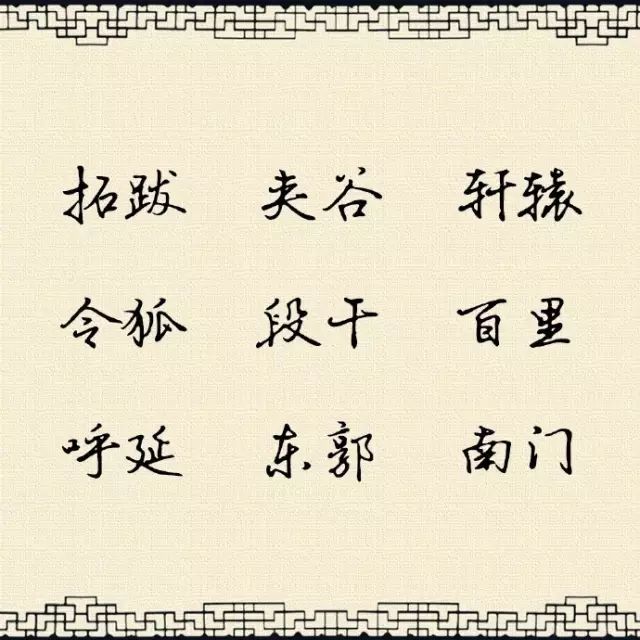 拓跋 夹谷 轩辕
令狐 段干 百里
呼延 东郭 南门